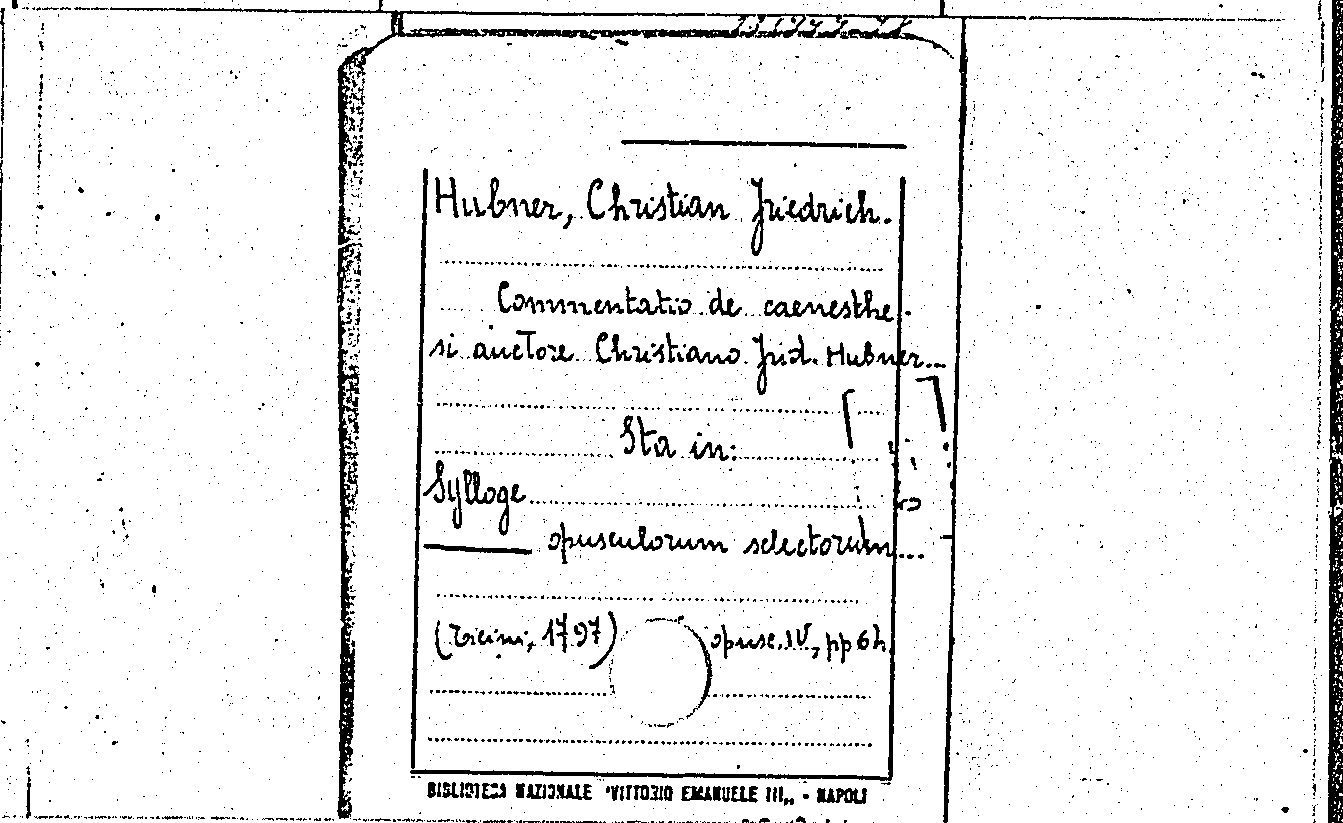 Hubner, Christian Friedrich.
Commentatio de caenesthe-
si auctore Christiano Frid. Hubner...
Sta in:
Sylloge
opusculorum selectorum...
(Ticini, 1797) opusc. IV, pp 64
BIBLIOTECA NAZIONALE "VITTORIO EMANUELE III„ - NAPOLI